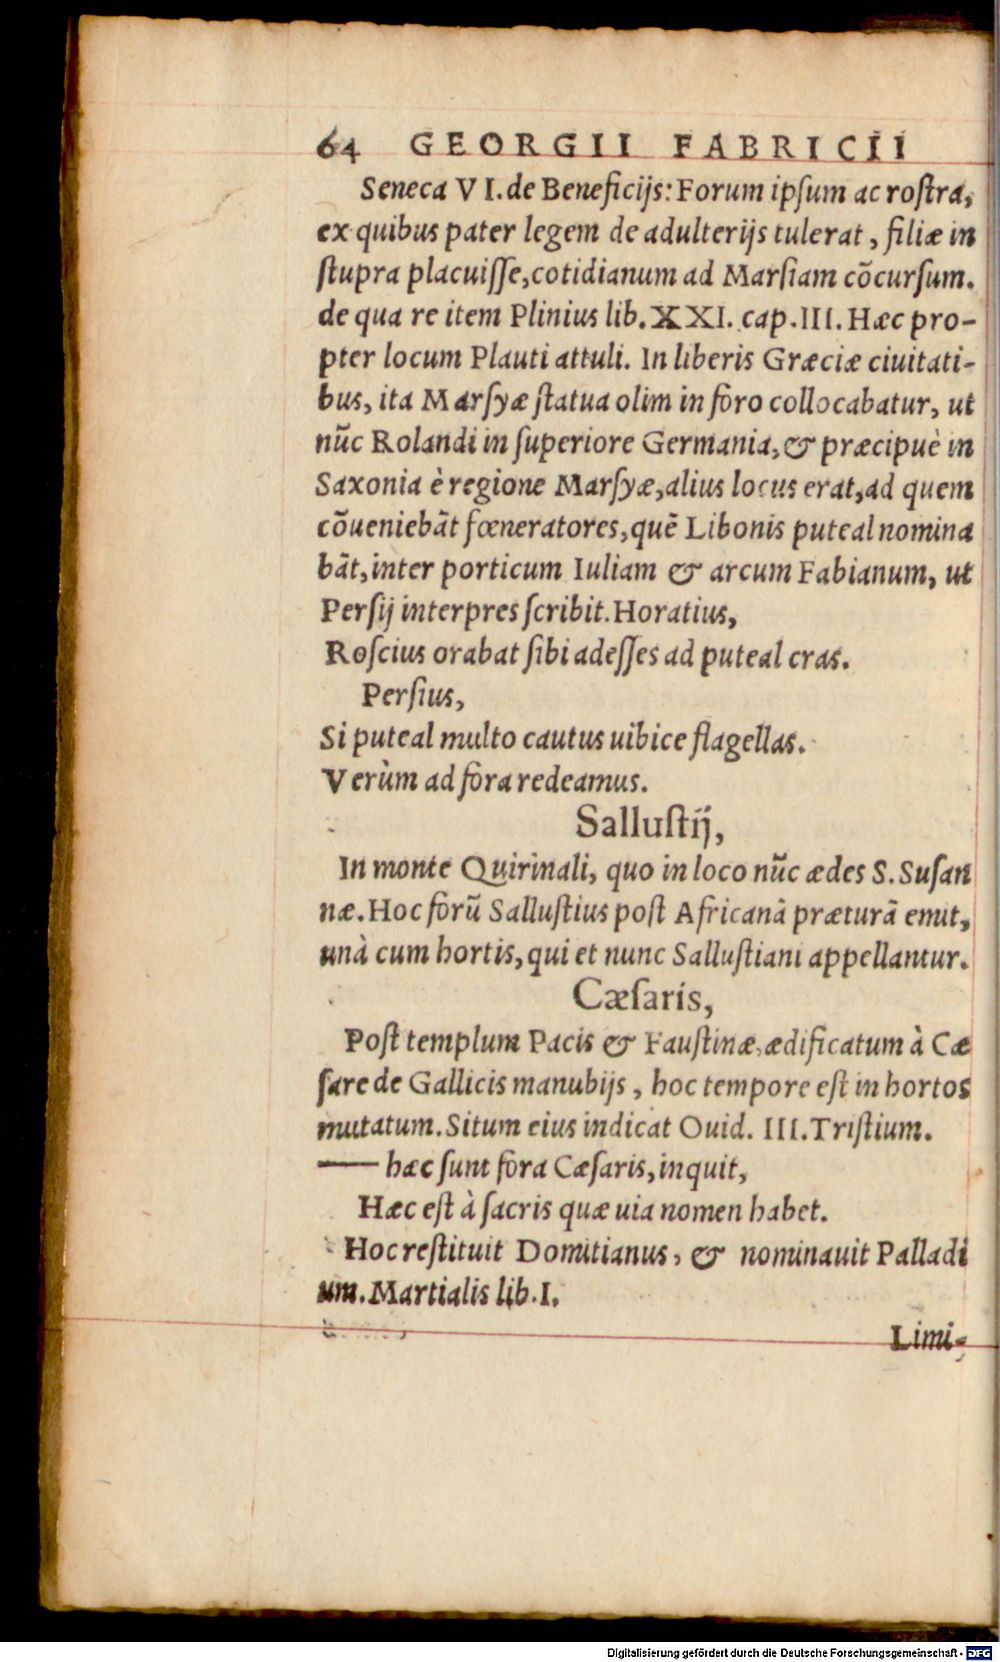 64 GEORGII FABRICII
Seneca VI. de Beneficijs: Forum ipſum ac roſtra,
ex quibus pater legem de adulterijs tulerat, filiæ in
ſtupra placuiſſe, cotidianum ad Marſiam cõcurſum.
de qua re item Plinius lib. XXI. cap. III. Hæc pro-
pter locum Plauti attuli. In liberis Græciæ ciuitati-
bus, ita Marſyæ ſtatua olim in foro collocabatur, ut
nũc Rolandi in ſuperiore Germania, & præcipuè in
Saxonia è regione Marſyæ, alius locus erat, ad quem
cõueniebãt fœneratores, quẽ Libonis puteal nomina
bãt, inter porticum Iuliam & arcum Fabianum, ut
Perſij interpres ſcribit. Horatius,
Roſcius orabat ſibi adeſſes ad puteal cras.
Perſius,
Si puteal multo cautus uibice flagellas.
Verùm ad fora redeamus.
Salluſtij,
In monte Quirinali, quo in loco nũc ædes S. Suſan
næ. Hoc forũ Salluſtius poſt Africanã præturã emit,
unà cum hortis, qui et nunc Salluſtiani appellantur.
Cæſaris,
Poſt templum Pacis & Fauſtinæ, ædificatum à Cæ
ſare de Gallicis manubijs, hoc tempore eſt in hortos
mutatum. Situm eius indicat Ouid. III. Triſtium.
—— hæc ſunt fora Cæſaris, inquit,
Hæc eſt à ſacris quæ uia nomen habet.
Hoc reſtituit Domitianus, & nominauit Palladi
um. Martialis lib. I.
Limi-
Digitalisierung gefördert durch die Deutsche Forschungsgemeinschaft - DFG